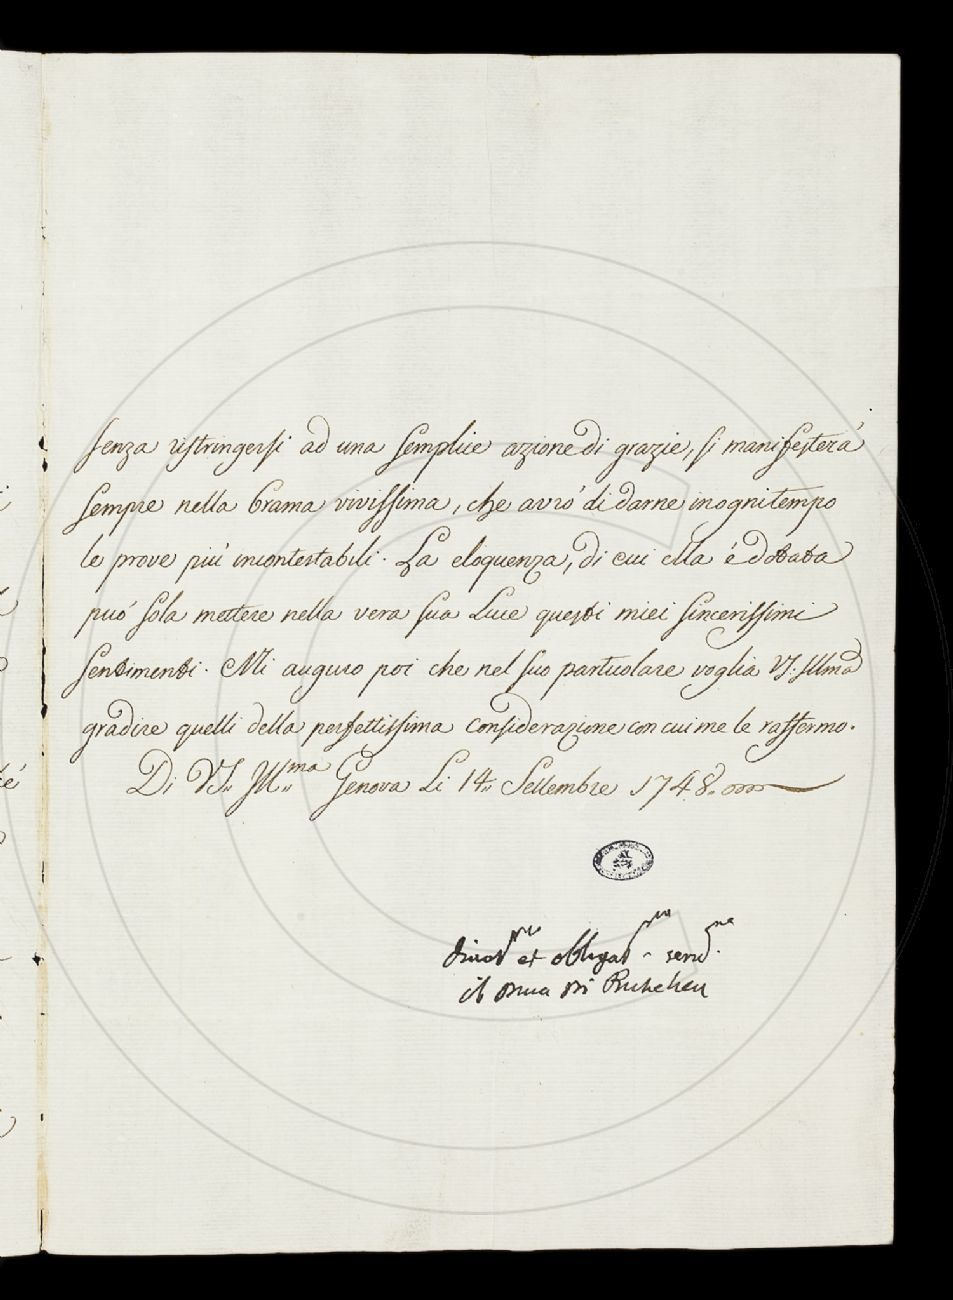 senza ristringersi ad una semplice azione di grazie, si manifesterá
sempre nella brama vivissima, che avró di darne in ogni tempo
le prove piú incontestabili. La eloquenza, di cui ella é dotata
puó sola mettere nella vera sua Luce questi miei sincerissimi
sentimenti. Mi auguro poi che nel suo particolare voglia VS. Illma
gradire quelli della perfettissima considerazione con cui me le raffermo.
Di VS. Ill.ma Genova Li 14. Settembre 1748.
et obligat.mo serv.re
il Duca di Richelieu